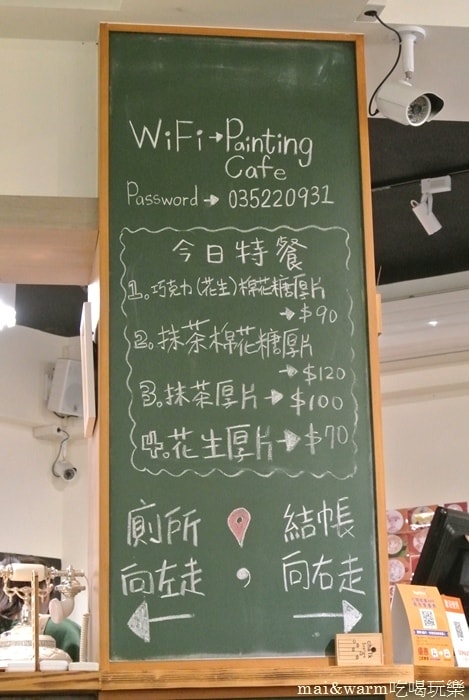 WiFi→Painting
Cafe
Password→035220931
今日特餐
1。巧克力(花生)棉花糖厚片
→$90
2。抹茶棉花糖厚片
→$120
3。抹茶厚片→$100
4。花生厚片→$70
廁所 結帳
向左走, 向右走
mai&warm吃喝玩樂